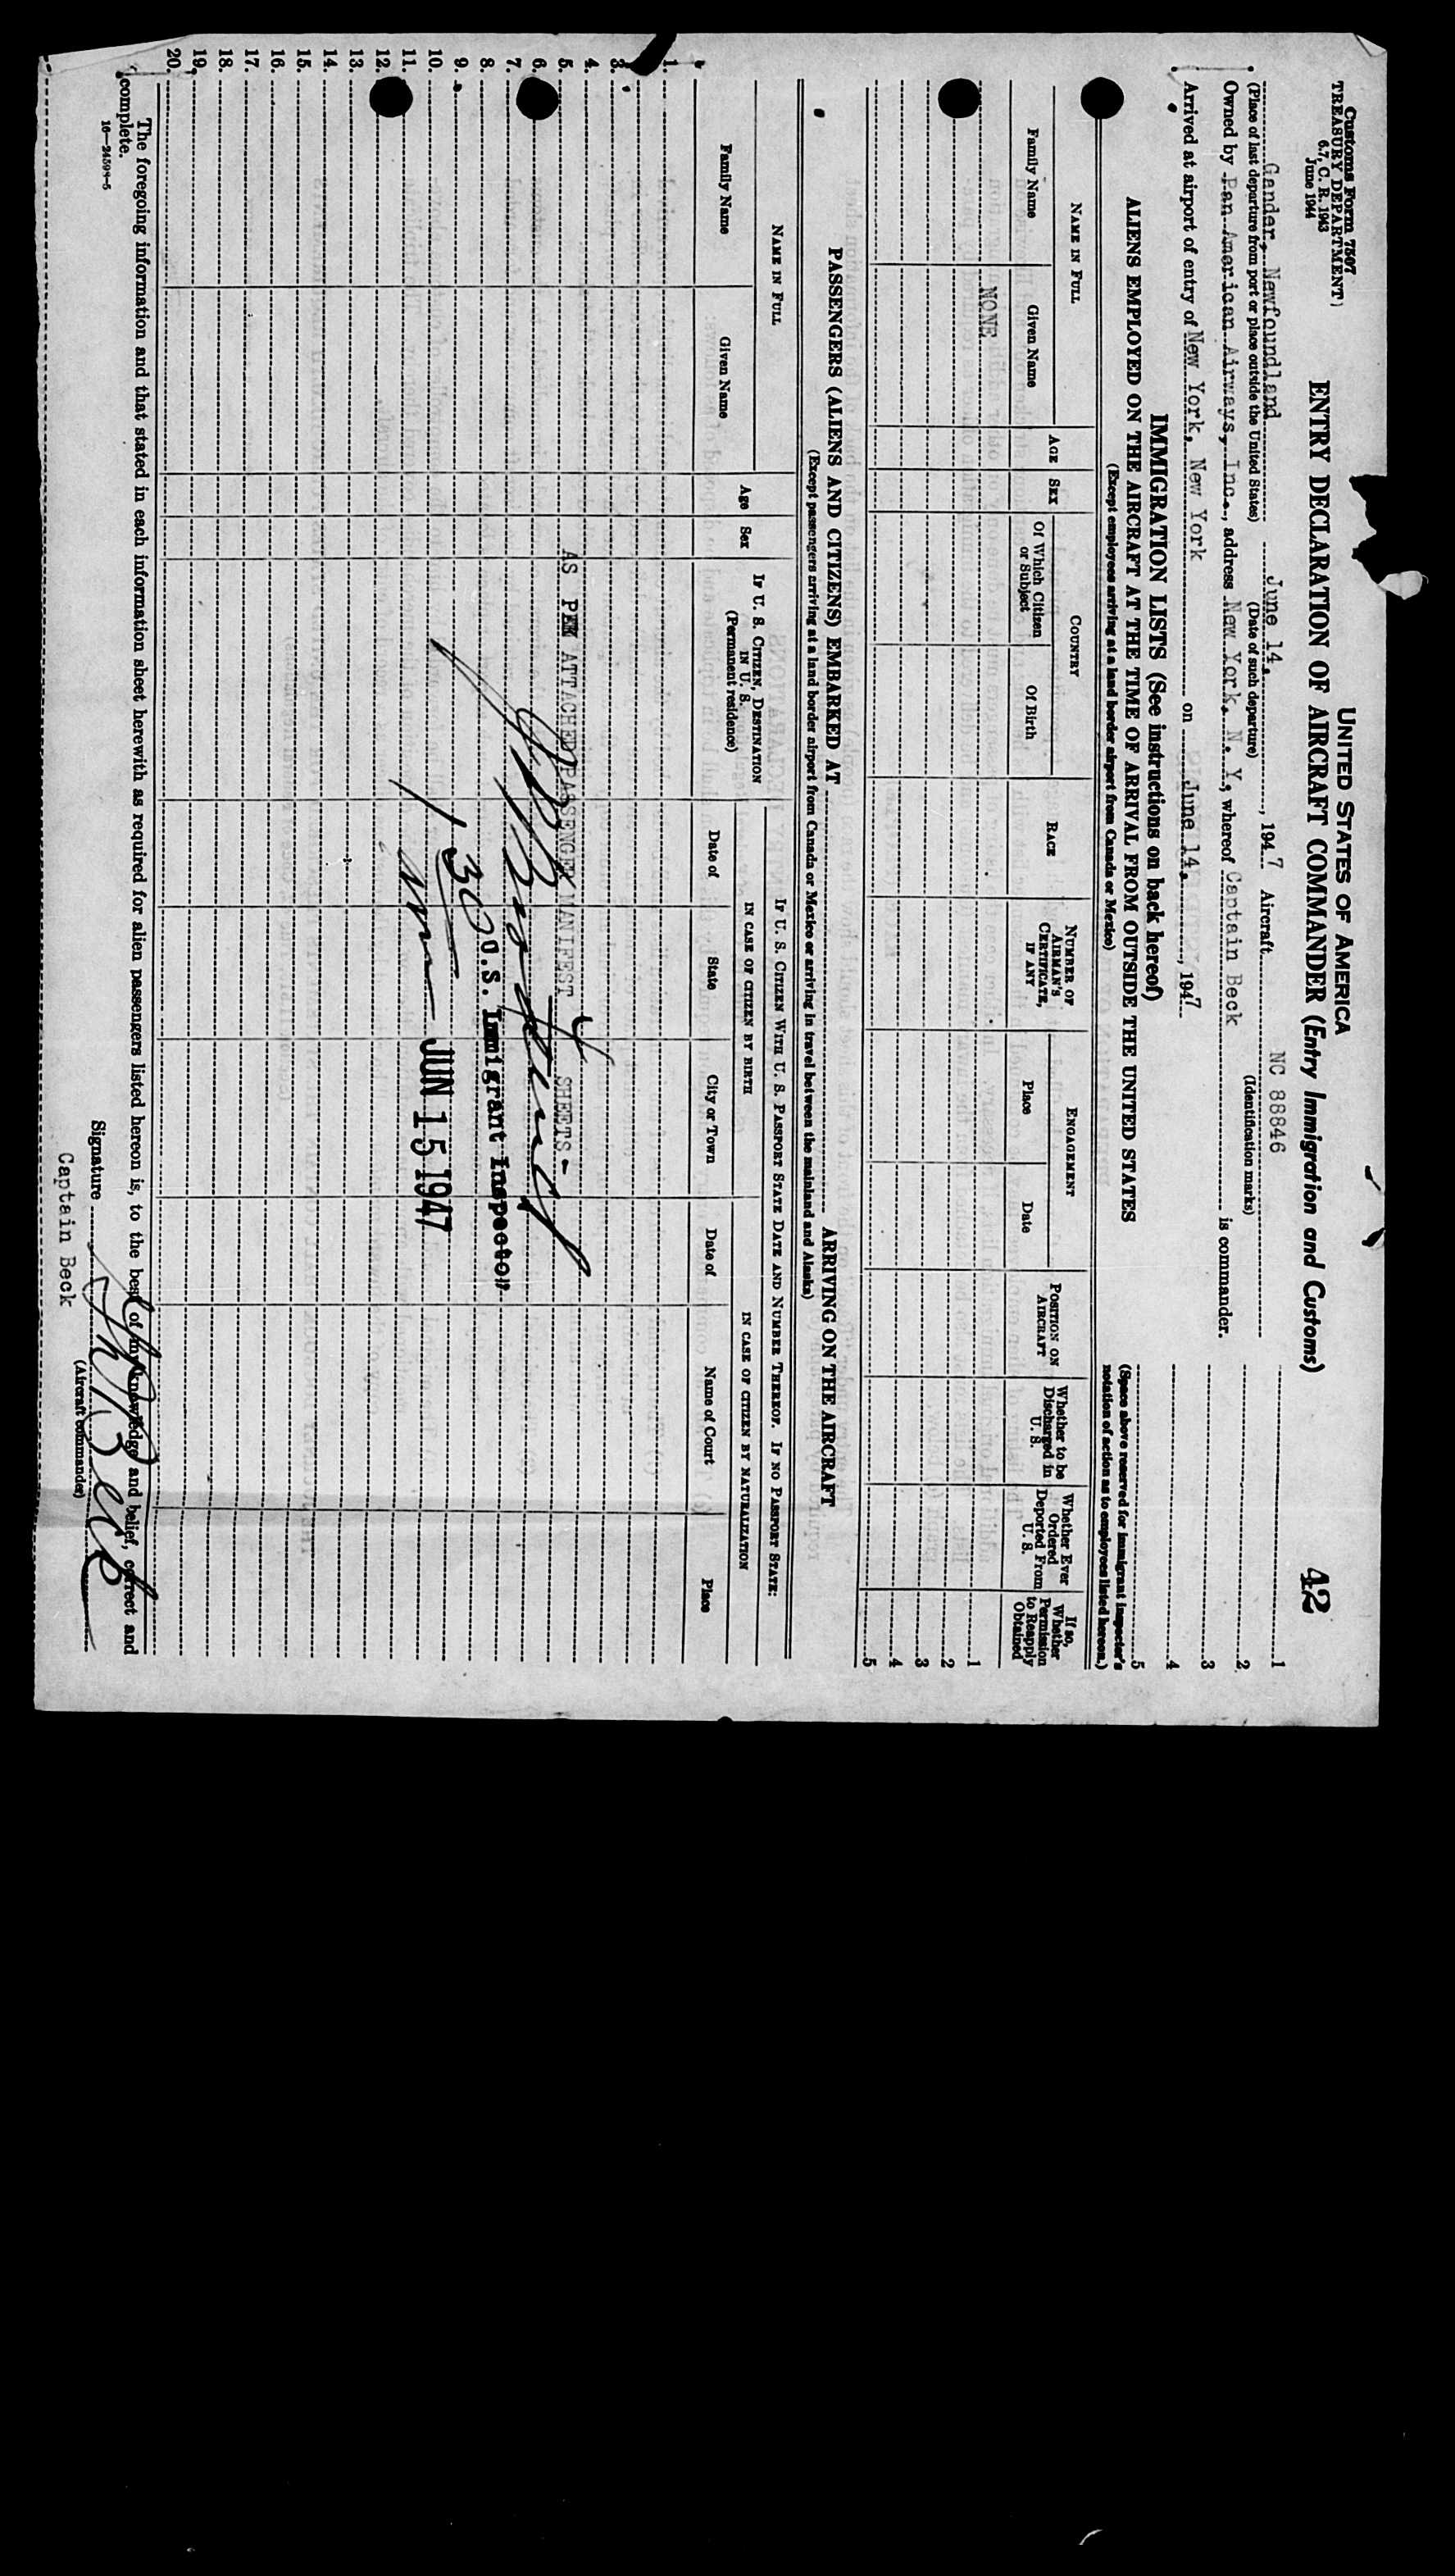 Customs Form 7507
TREASURY DEPARTMENT
6.7, C. R. 1943
June 1944
UNITED STATES OF AMERICA
ENTRY DECLARATION OF AIRCRAFT COMMANDER (Entry Immigration and Customs)
42
Gander, Newfoundland June 14, 1947 Aircraft NC 88846
(Place of last departure from port or place outside the United States) (Date of such departure) (Identification marks)
Owned by Pan American Airways, Inc., address New York, N. Y., whereof Captain Beck is commander.
Arrived at airport of entry of New York, New York on June 14, 1947
1
2
3
4
5
(Space above reserved for immigrant inspector's notation of action as to employees listed hereon.)
IMMIGRATION LISTS (See instructions on back hereof)
ALIENS EMPLOYED ON THE AIRCRAFT AT THE TIME OF ARRIVAL FROM OUTSIDE THE UNITED STATES
(Except employees arriving at a land border airport from Canada or Mexico)
NAME IN FULL
Family Name Given Name
AGE
SEX
COUNTRY
Of Which Citizen or Subject Of Birth
RACE
NUMBER OF AIRMAN'S CERTIFICATE, IF ANY
ENGAGEMENT
Place Date
POSITION ON AIRCRAFT
Whether to be Discharged in U. S.
Whether Ever Ordered Deported From U. S.
If so, Whether Permission to Reapply Obtained
NONE 1
2
3
4
5
PASSENGERS (ALIENS AND CITIZENS) EMBARKED AT ARRIVING ON THE AIRCRAFT
(Except passengers arriving at a land border airport from Canada or Mexico or arriving in travel between the mainland and Alaska)
NAME IN FULL
Family Name Given Name
Age
Sex
IF U. S. CITIZEN, DESTINATION IN U. S.
(Permanent residence)
IF U. S. CITIZEN WITH U. S. PASSPORT STATE DATE AND NUMBER THEREOF. IF NO PASSPORT STATE:
IN CASE OF CITIZEN BY BIRTH IN CASE OF CITIZEN BY NATURALIZATION
Date of State City or Town Date of Name of Court Place
1.
3.
4.
5. AS PER ATTACHED PASSENGER MANIFEST 4 SHEETS -
6.
7.
8. U.S. Immigrant Inspector
9. 130
10. JUN 15 1947
11.
12.
13.
14.
15.
16.
17.
18.
19.
20.
The foregoing information and that stated in each information sheet herewith as required for alien passengers listed hereon is, to the best of my knowledge and belief, correct and
complete.
16—24598-5
Signature Beck
(Aircraft commander)
Captain Beck